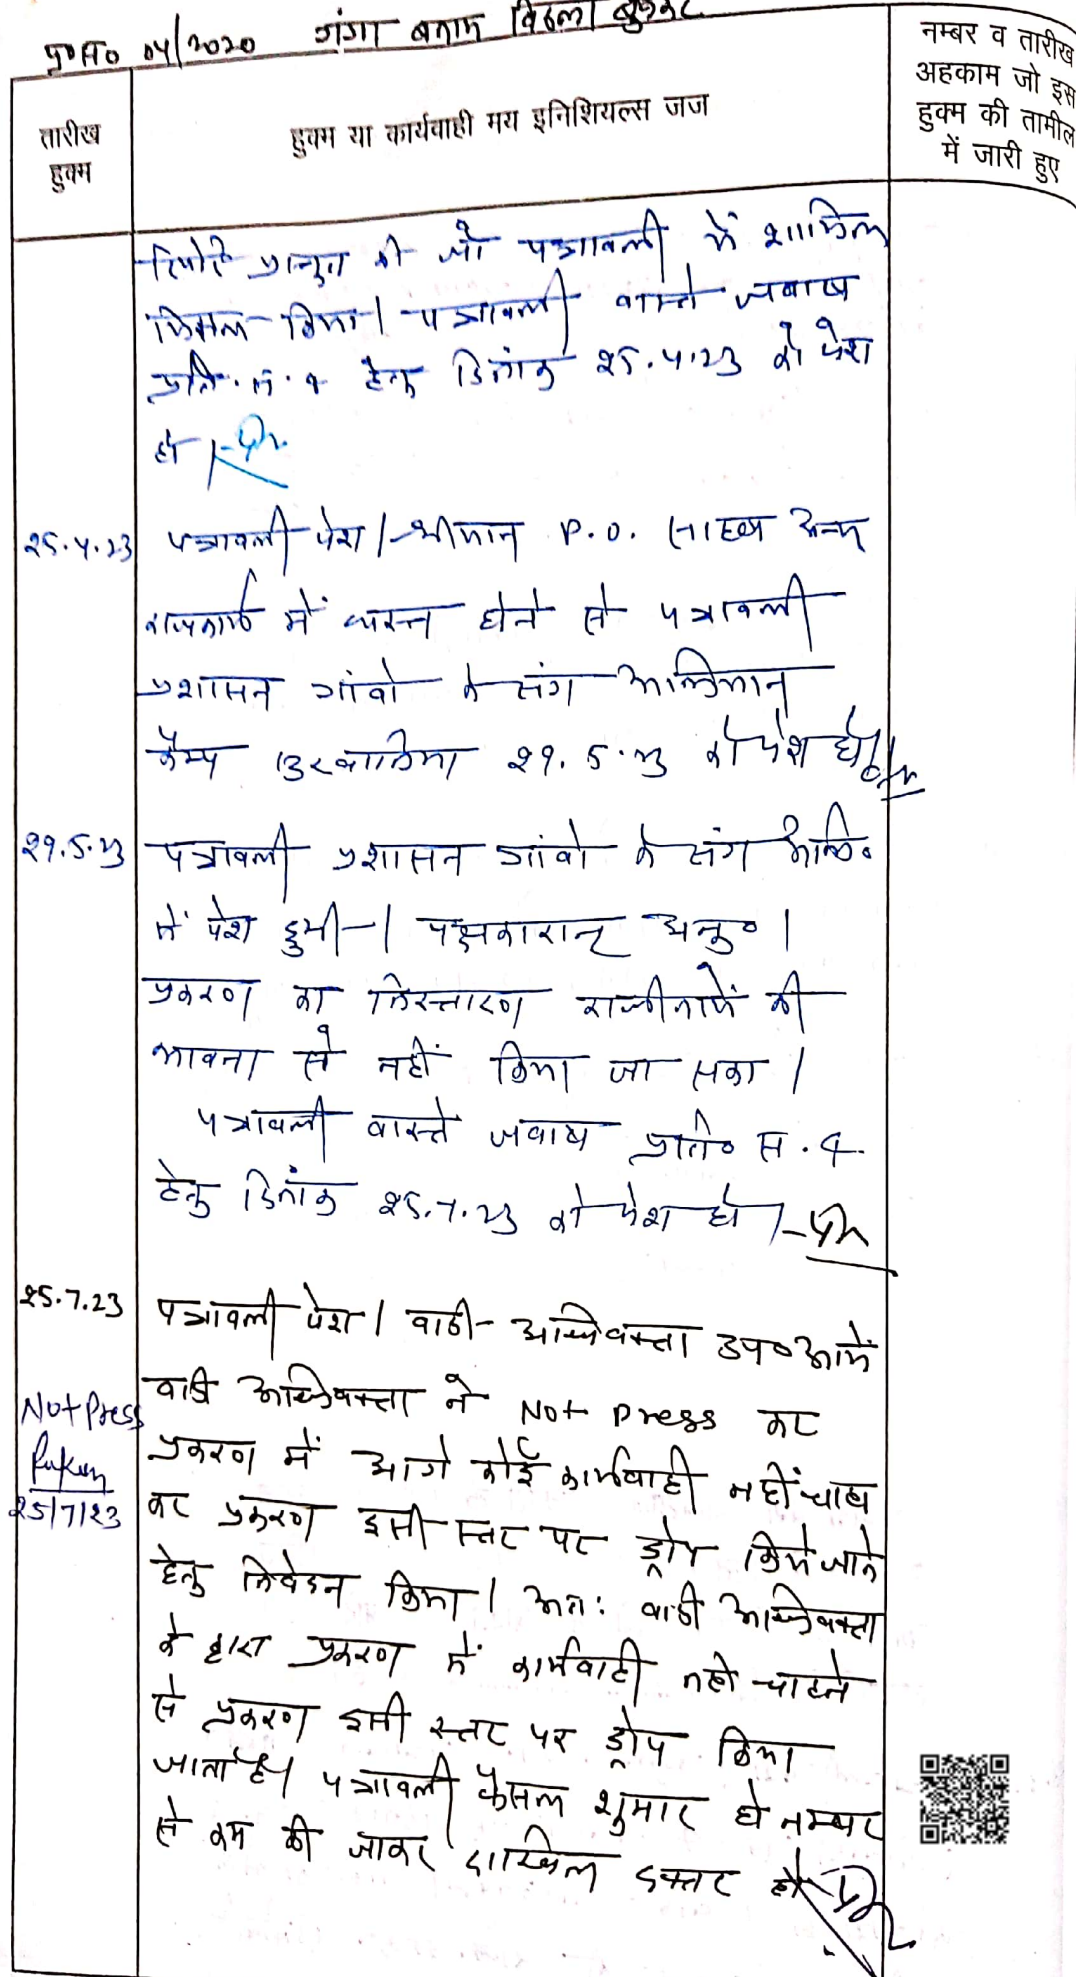 प्र०सं० 04/2020 गंगा बनाम
नम्बर व तारीख
अहकाम जो इस
हुक्म की तामील
में जारी हुए
तारीख
हुक्म
हुक्म या कार्यवाही मय इनिशियल्स जज
रिपोर्ट प्रस्तुत की जो पत्रावली में शामिल
मिसल किया। पत्रावली वास्ते जवाब
प्रति. सं. 4 हेतु दिनांक 25.4.23 को पेश
हो।
25.4.23 पत्रावली पेश। श्रीमान P.O. साहब अन्य
राजकार्य में व्यस्त होने से पत्रावली
प्रशासन गांवो के संग अभियान
कैम्प 29.5.23 को पेश हो।
29.5.23 पत्रावली प्रशासन गांवो के संग अभि०
में पेश हुयी। पक्षकारान् अनु० ।
प्रकरण का निस्तारण राजीनामें की
भावना से नहीं किया जा सका ।
पत्रावली वास्ते जवाब प्रति० स. 4
हेतु दिनांक 25.7.23 को पेश हो।
25.7.23 पत्रावली पेश। वादी अधिवक्ता उप० आयें
वादी अधिवक्ता ने Not press कर
Not Press
प्रकरण में आगे कोई कार्यवाही नहीं चाह
25/7/23
कर प्रकरण इसी स्तर पर ड्रोप किये जाने
हेतु निवेदन किया। अतः वादी अधिवक्ता
के द्वारा प्रकरण में कार्यवाही नही चाहने
से प्रकरण इसी स्तर पर ड्रोप किया
जाता है। पत्रावली फैसल शुमार हो नम्बर
से कम की जाकर दाखिल दफ्तर हो